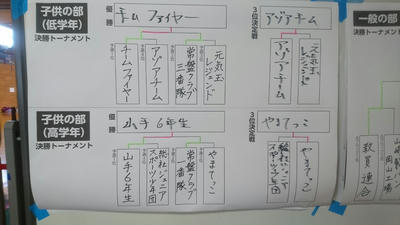 子供の部
(低学年)
決勝トーナメント
優勝
チームファイヤー
3位決定戦
アゾアチーム
チームファイヤー
アゾアチーム
常盤クラブ
三番隊
元気玉
レジェンド
アゾアチーム
元気玉
レジェンド
子供の部
(高学年)
決勝トーナメント
優勝
山手6年生
3位決定戦
やまてっこ
山手6年生
総社ジュニア
スポーツ少年団
常盤クラブ
一番隊
やまてっこ
総社ジュニア
スポーツ少年団
やまてっこ
一般の部
決勝トーナメント
教員連合
岡山工場